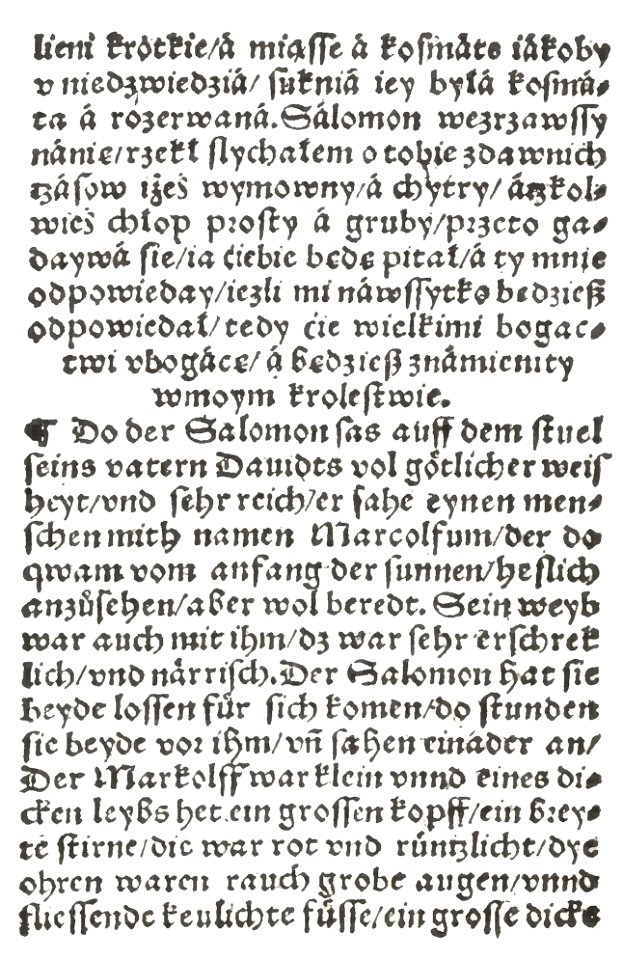 lieni krotkie/á miąsse á kosmáte iákoby
v niedzwiedziá/ sukniá iey byłá kosmá⸗
ta á rozerwaná. Sálomon wezrzawssy
nánie/rzekł slychałem o tobie zdawnich
czásow iżeś wymowny/á chytry/ áczkol⸗
wieś chłop prosty á gruby/przeto ga⸗
daywá sie/ia ciebie bede pitał/á ty mnie
odpowieday/iezli mi náwssytko bedzieß
odpowiedał/tedy cie wielkimi bogac⸗
twi vbogáce/ á bedzieß známienity
wmoym krolestwie.
¶ Do der Salomon sas auff dem stuel
seins vatern Dauidts vol götlicher weis
heyt/vnd sehr reich/er sahe eynen men⸗
schen mith namen Marcolfum/der do
qwam vom anfang der sunnen/heslich
anzůsehen/aber wol beredt. Sein weyb
war auch mit ihm/dz war sehr erschrek
lich/vnd närrisch. Der Salomon hat sie
beyde lossen für sich komen/do stunden
sie beyde vor ihm/vn̄ sahen eināder an/
Der Markolff war klein vnnd eines di⸗
cken leybs het ein grossen kopff/ein brey⸗
te stirne/die war rot vnd rüntzlicht/dye
ohren waren rauch grobe augen/vnnd
fliessende keulichte füsse/ein grosse dicke